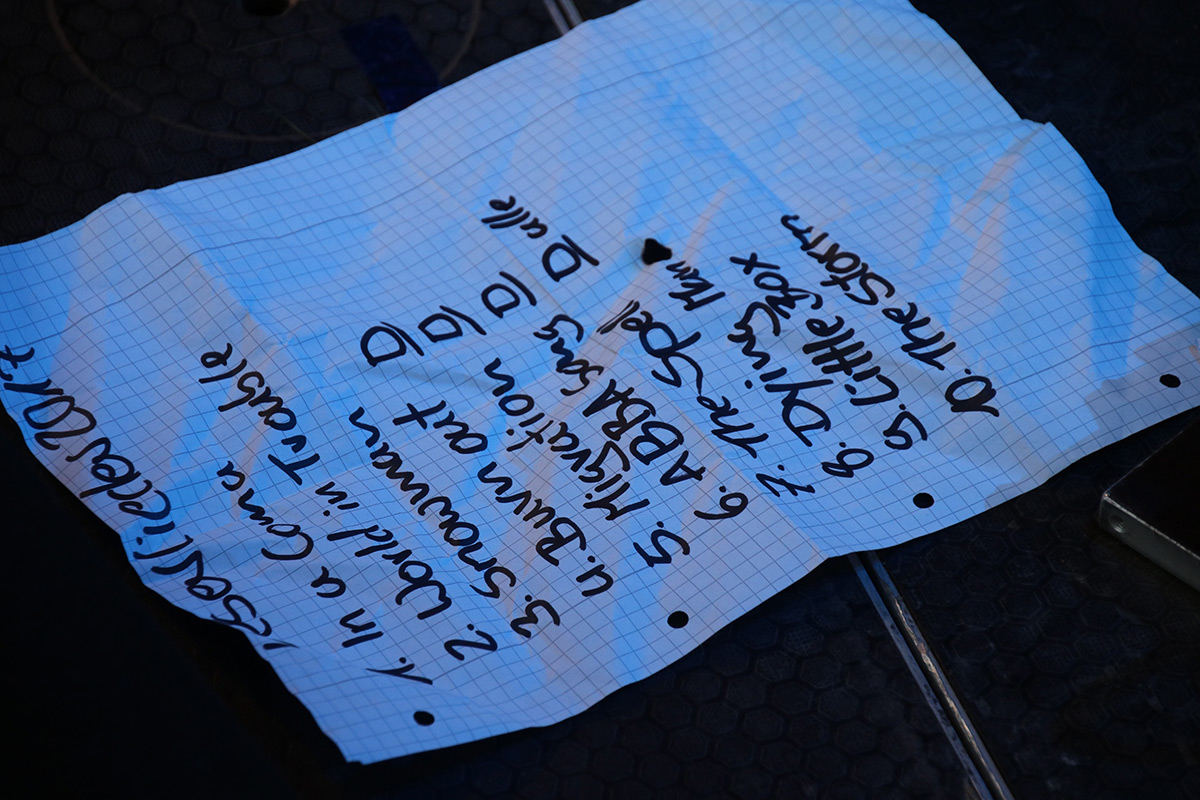 1. In a Coma
2. World in Trouble
3. Snowman D
4. Burn out D
5. Migration D
6. ABBA Song D alle
7. The Spell
8. Dying Man
9. Little Box
10. The Storm